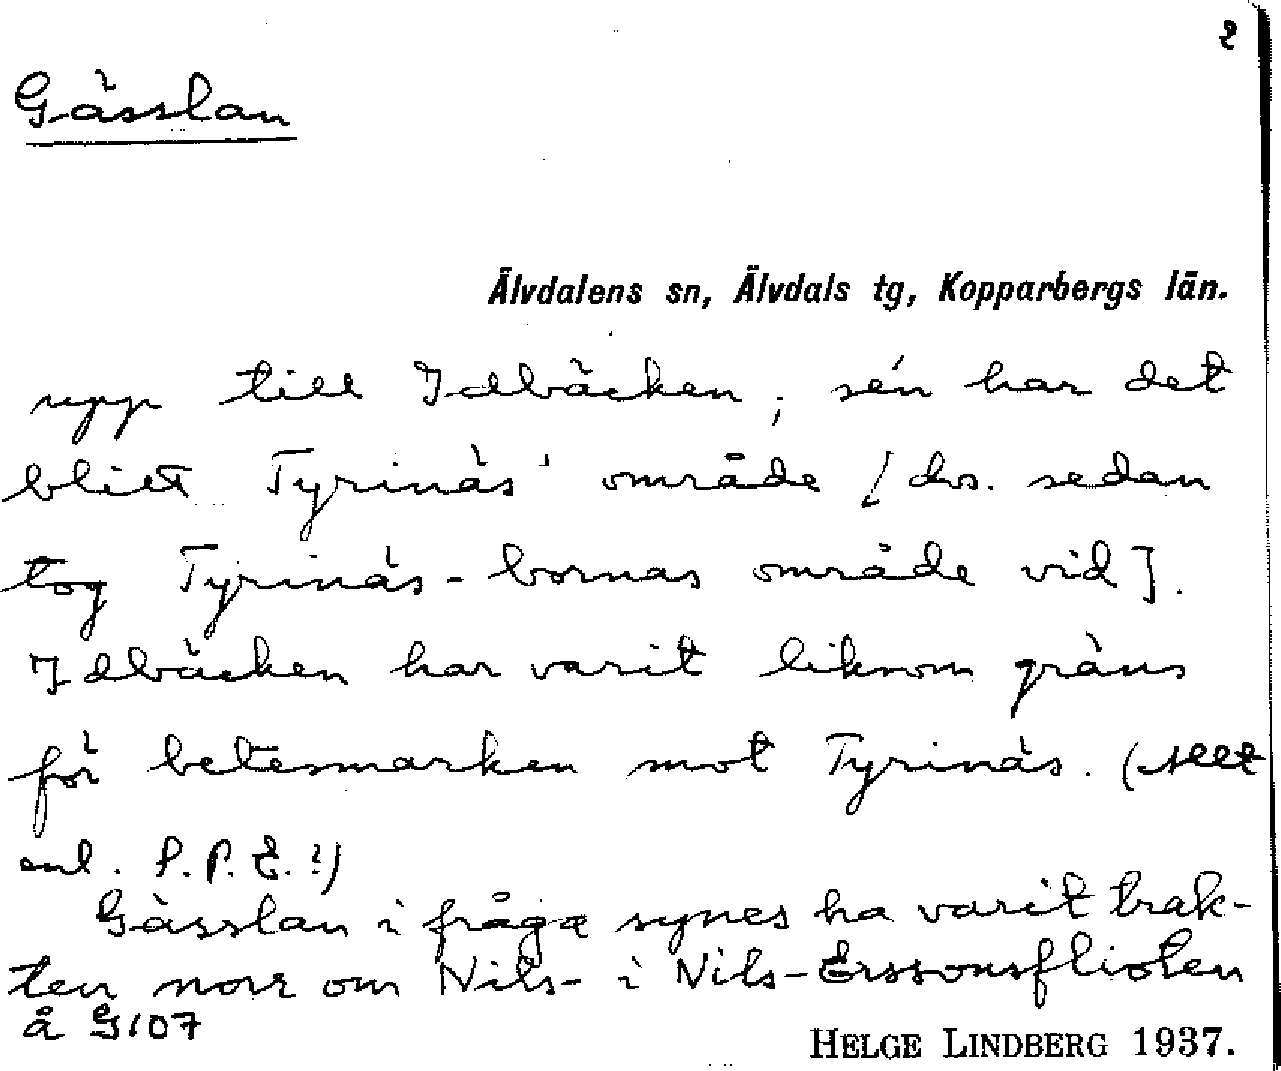 2
Gässlan
Älvdalens sn, Älvdals tg, Kopparbergs län.
upp till Idbäcken; sén har det
bliet Tyrinäs' område [dvs. sedan
tog Tyrinäs-bornas område vid].
Idbäcken har varit liksom gräns
för betesmarken mot Tyrinäs. (Allt
enl. P.P.E.?)
Gässlan i fråga synes ha varit trak-
ten norr om Nils- i Nils-Erssonsflioten
å G107
HELGE LINDBERG 1937.